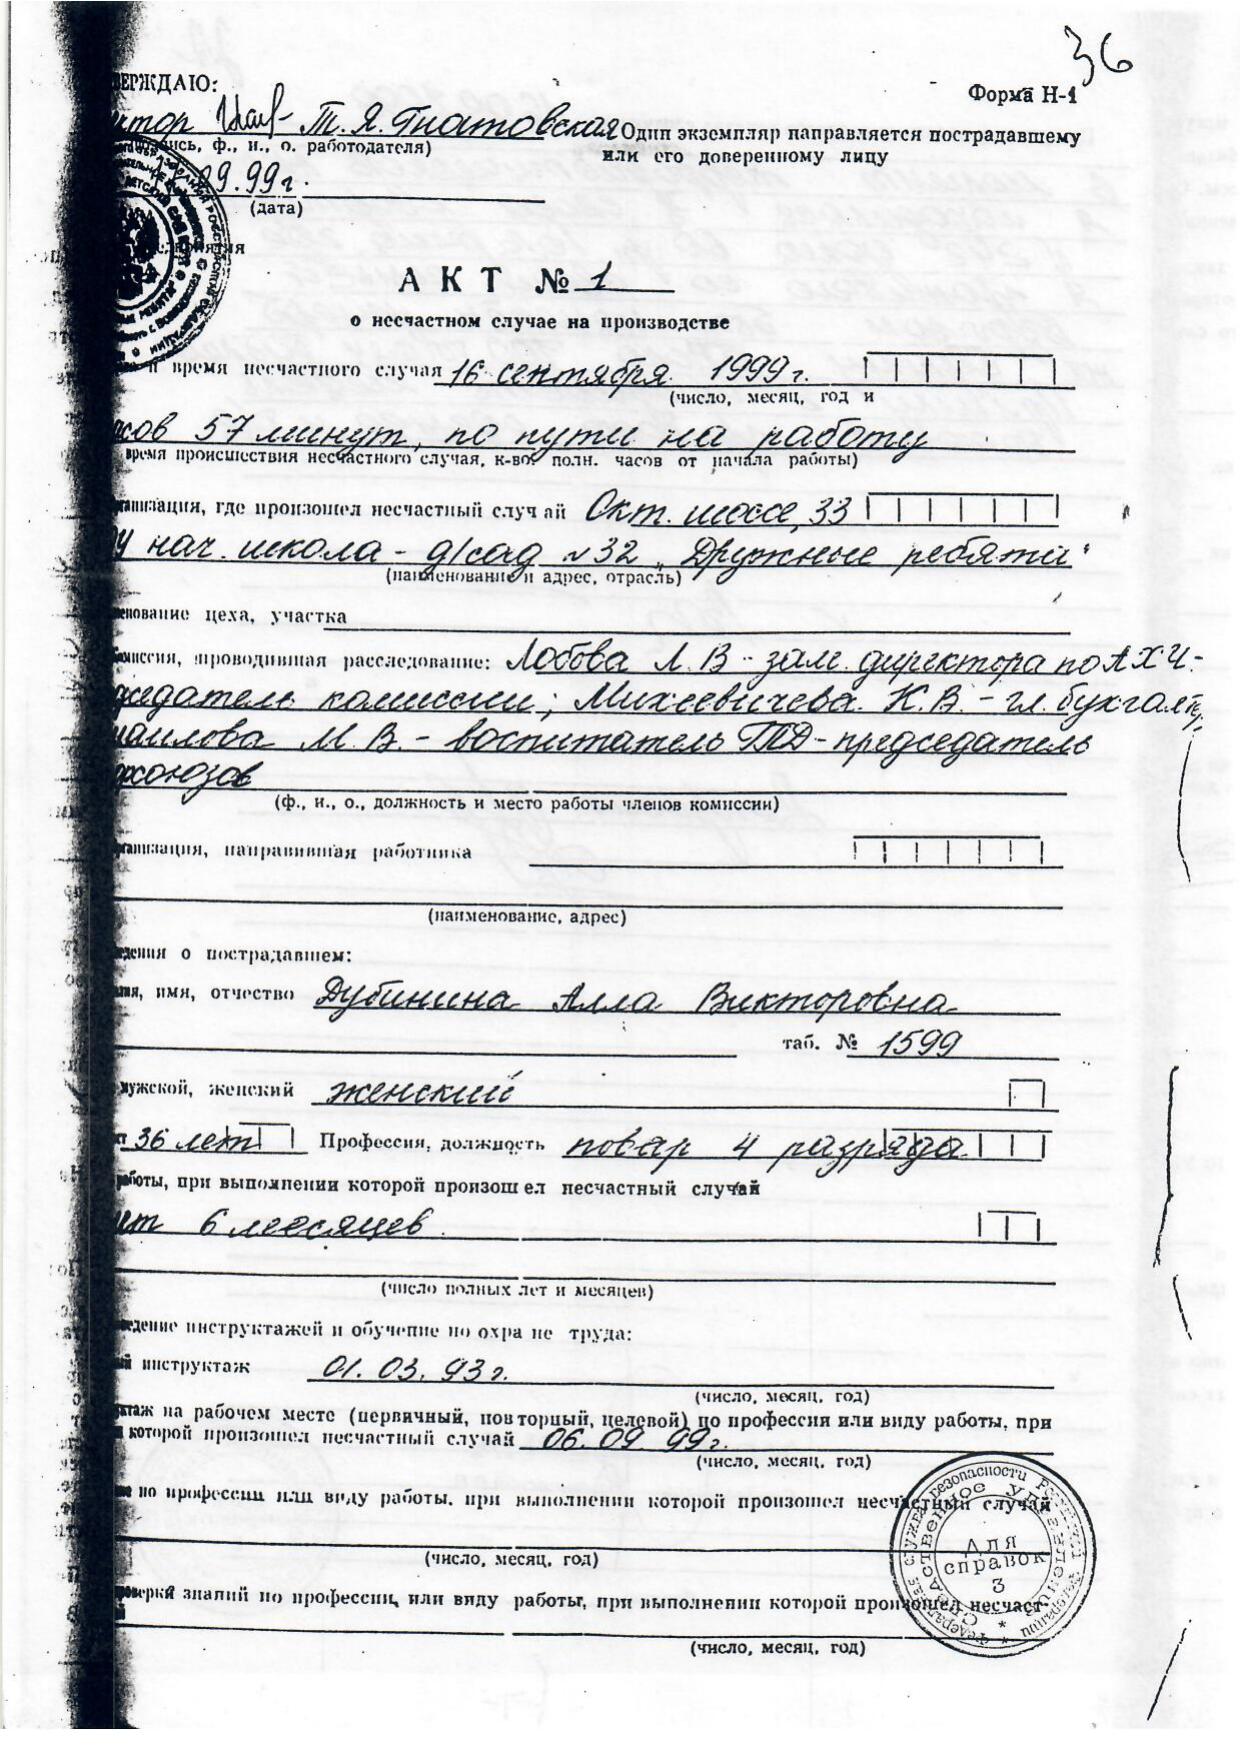 36
ЕРЖДАЮ:
Форма Н-1
ктор Т. Я. Гнатовская Один экземпляр направляется пострадавшему
ись, ф., и., о. работодателя)
или его доверенному лицу
09.99г.
(дата)
АКТ № 1
о несчастном случае на производстве
и время несчастного случая 16 сентября 1999г.
(число, месяц, год и
сов 57 минут, по пути на работу
время происшествия несчастного случая, к-во полн. часов от начала работы)
низация, где произошел несчастный случай Окт. шоссе, 33
У нач. школа - д/сад №32 „Дружные ребята"
(наименование и адрес, отрасль)
нование цеха, участка
миссия, проводившая расследование: Лобова Л. В - зам. директора по АХЧ-
седатель комиссии; Михеевичева К.В. - гл. бухгалт
аилова М. В. - воспитатель ГПД - председатель
хсоюзов
(ф., и., о., должность и место работы членов комиссии)
низация, направившая работника
(наименование, адрес)
едения о пострадавшем:
имя, отчество Дубинина Алла Викторовна
таб. № 1599
мужской, женский женский
36 лет Профессия, должность повар 4 разряда
аботы, при выполнении которой произошел несчастный случай
ет 6 месяцев
(число полных лет и месяцев)
едение инструктажей и обучение по охране труда:
й инструктаж 01. 03. 93г.
(число, месяц, год)
таж на рабочем месте (первичный, повторный, целевой) по профессии или виду работы, при
которой произошел несчастный случай 06. 09. 99г.
(число, месяц, год)
ие по профессии или виду работы, при выполнении которой произошел несчастный случай
(число, месяц, год)
роверки знаний по профессии, или виду работы, при выполнении которой произошел несчаст-
(число, месяц, год)
Федеральная служба безопасности Российской Федерации
Следственное управление
Для
справок
3